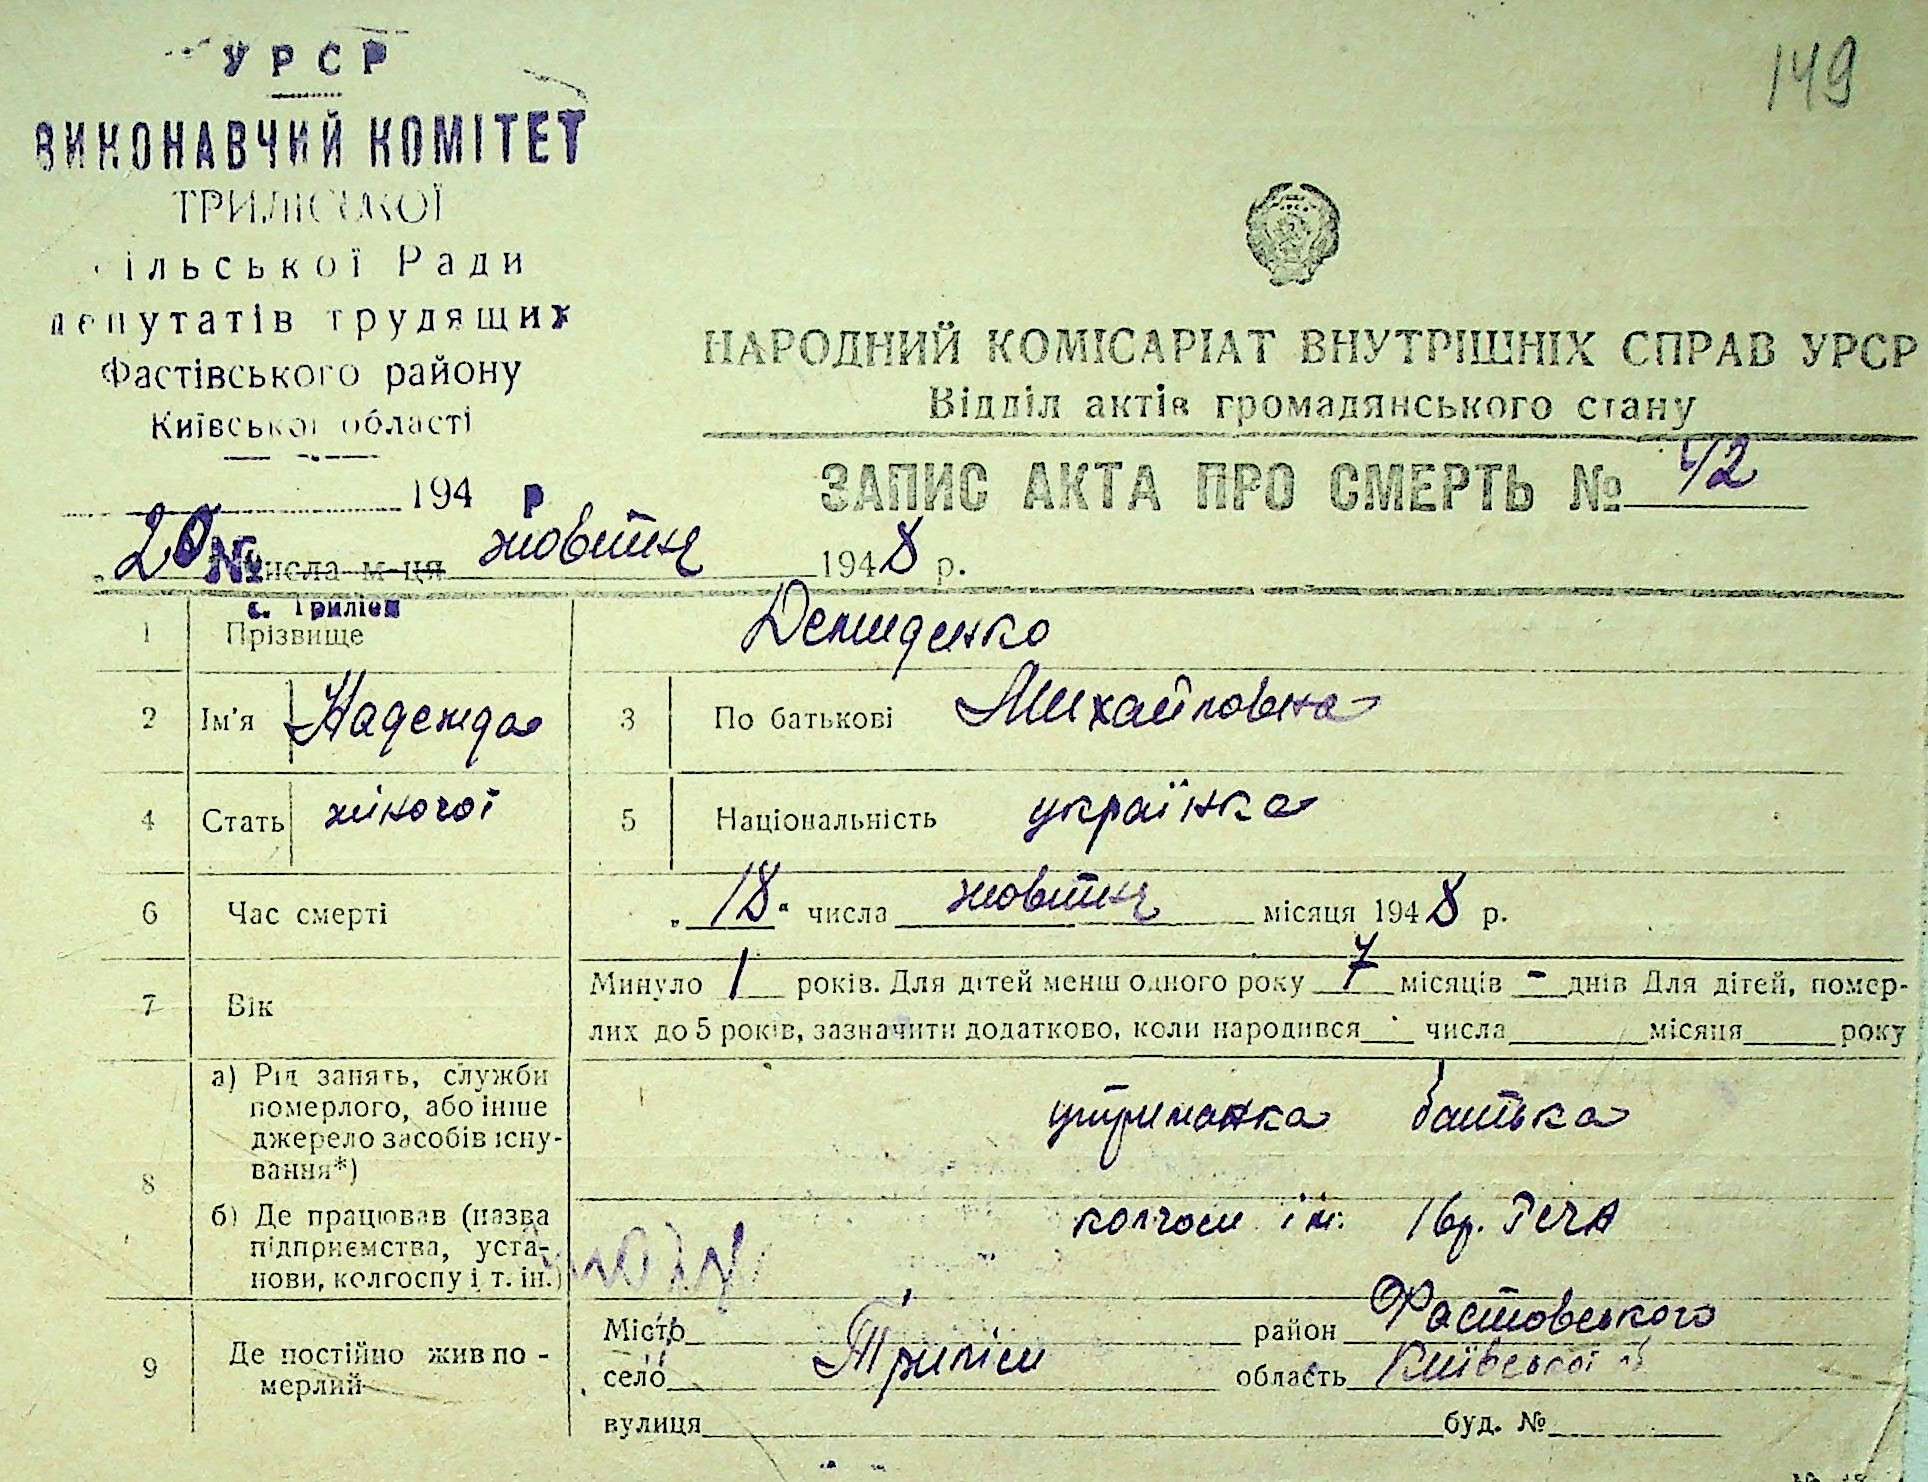 149
УРСР
ВИКОНАВЧИЙ КОМІТЕТ
ТРИЛІСЬКОЇ
ільської Ради
депутатів трудящих
Фастівського району
Київської області
194 р
НАРОДНИЙ КОМІСАРІАТ ВНУТРІШНІХ СПРАВ УРСР
Відділ актів громадянського стану
ЗАПИС АКТА ПРО СМЕРТЬ № 42
„20 № числа м-ця жовтня 1948 р.
с. Триліси
1 Прізвище Демиденко
2 Ім'я Надежда 3 По батькові Михайловна
4 Стать жіночої 5 Національність українка
6 Час смерті „18" числа жовтня місяця 1948 р.
7 Вік Минуло 1 років. Для дітей менш одного року 7 місяців - днів Для дітей, помер-
лих до 5 років, зазначити додатково, коли народився числа місяця року
8 а) Рід занять, служби
померлого, або інше
джерело засобів існу-
вання*) утриманка батька
б) Де працював (назва
підприємства, уста-
нови, колгоспу і т. ін.) колгосп ім.
9 Де постійно жив по-
мерлий
Місто район Фастовського
село Триліси область Київської
вулиця буд. №